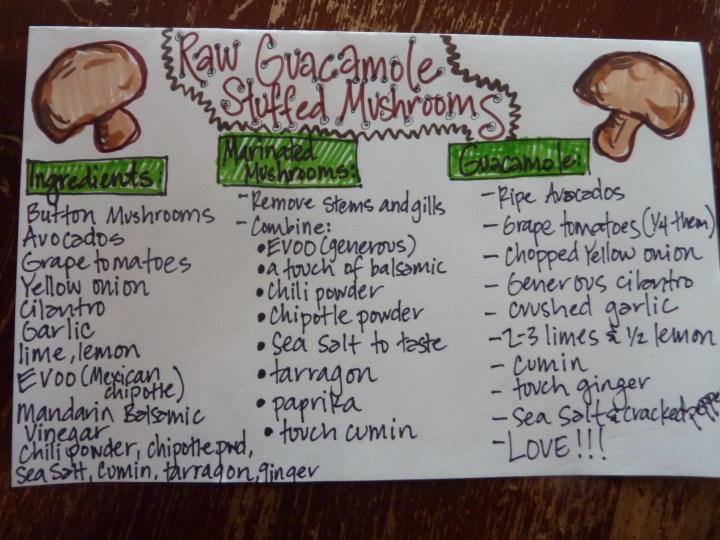 Raw Guacamole
Stuffed Mushrooms
Ingredients:
Button Mushrooms
Avocados
Grape tomatoes
Yellow onion
Cilantro
Garlic
lime, lemon
EVOO (Mexican
chipotle)
Mandarin Balsamic
Vinegar
Chili powder, chipotle pwd,
Sea Salt, Cumin, tarragon, ginger
Marinated
Mushrooms:
- Remove stems and gills
- Combine:
• EVOO (generous)
• a touch of balsamic
• chili powder
• chipotle powder
• Sea Salt to taste
• tarragon
• paprika
• touch cumin
Guacamole:
- Ripe Avocados
- Grape tomatoes (1/4 them)
- Chopped Yellow onion
- Generous cilantro
- crushed garlic
- 2-3 limes & 1/2 lemon
- cumin
- touch ginger
- Sea Salt & cracked peppe
- LOVE!!!